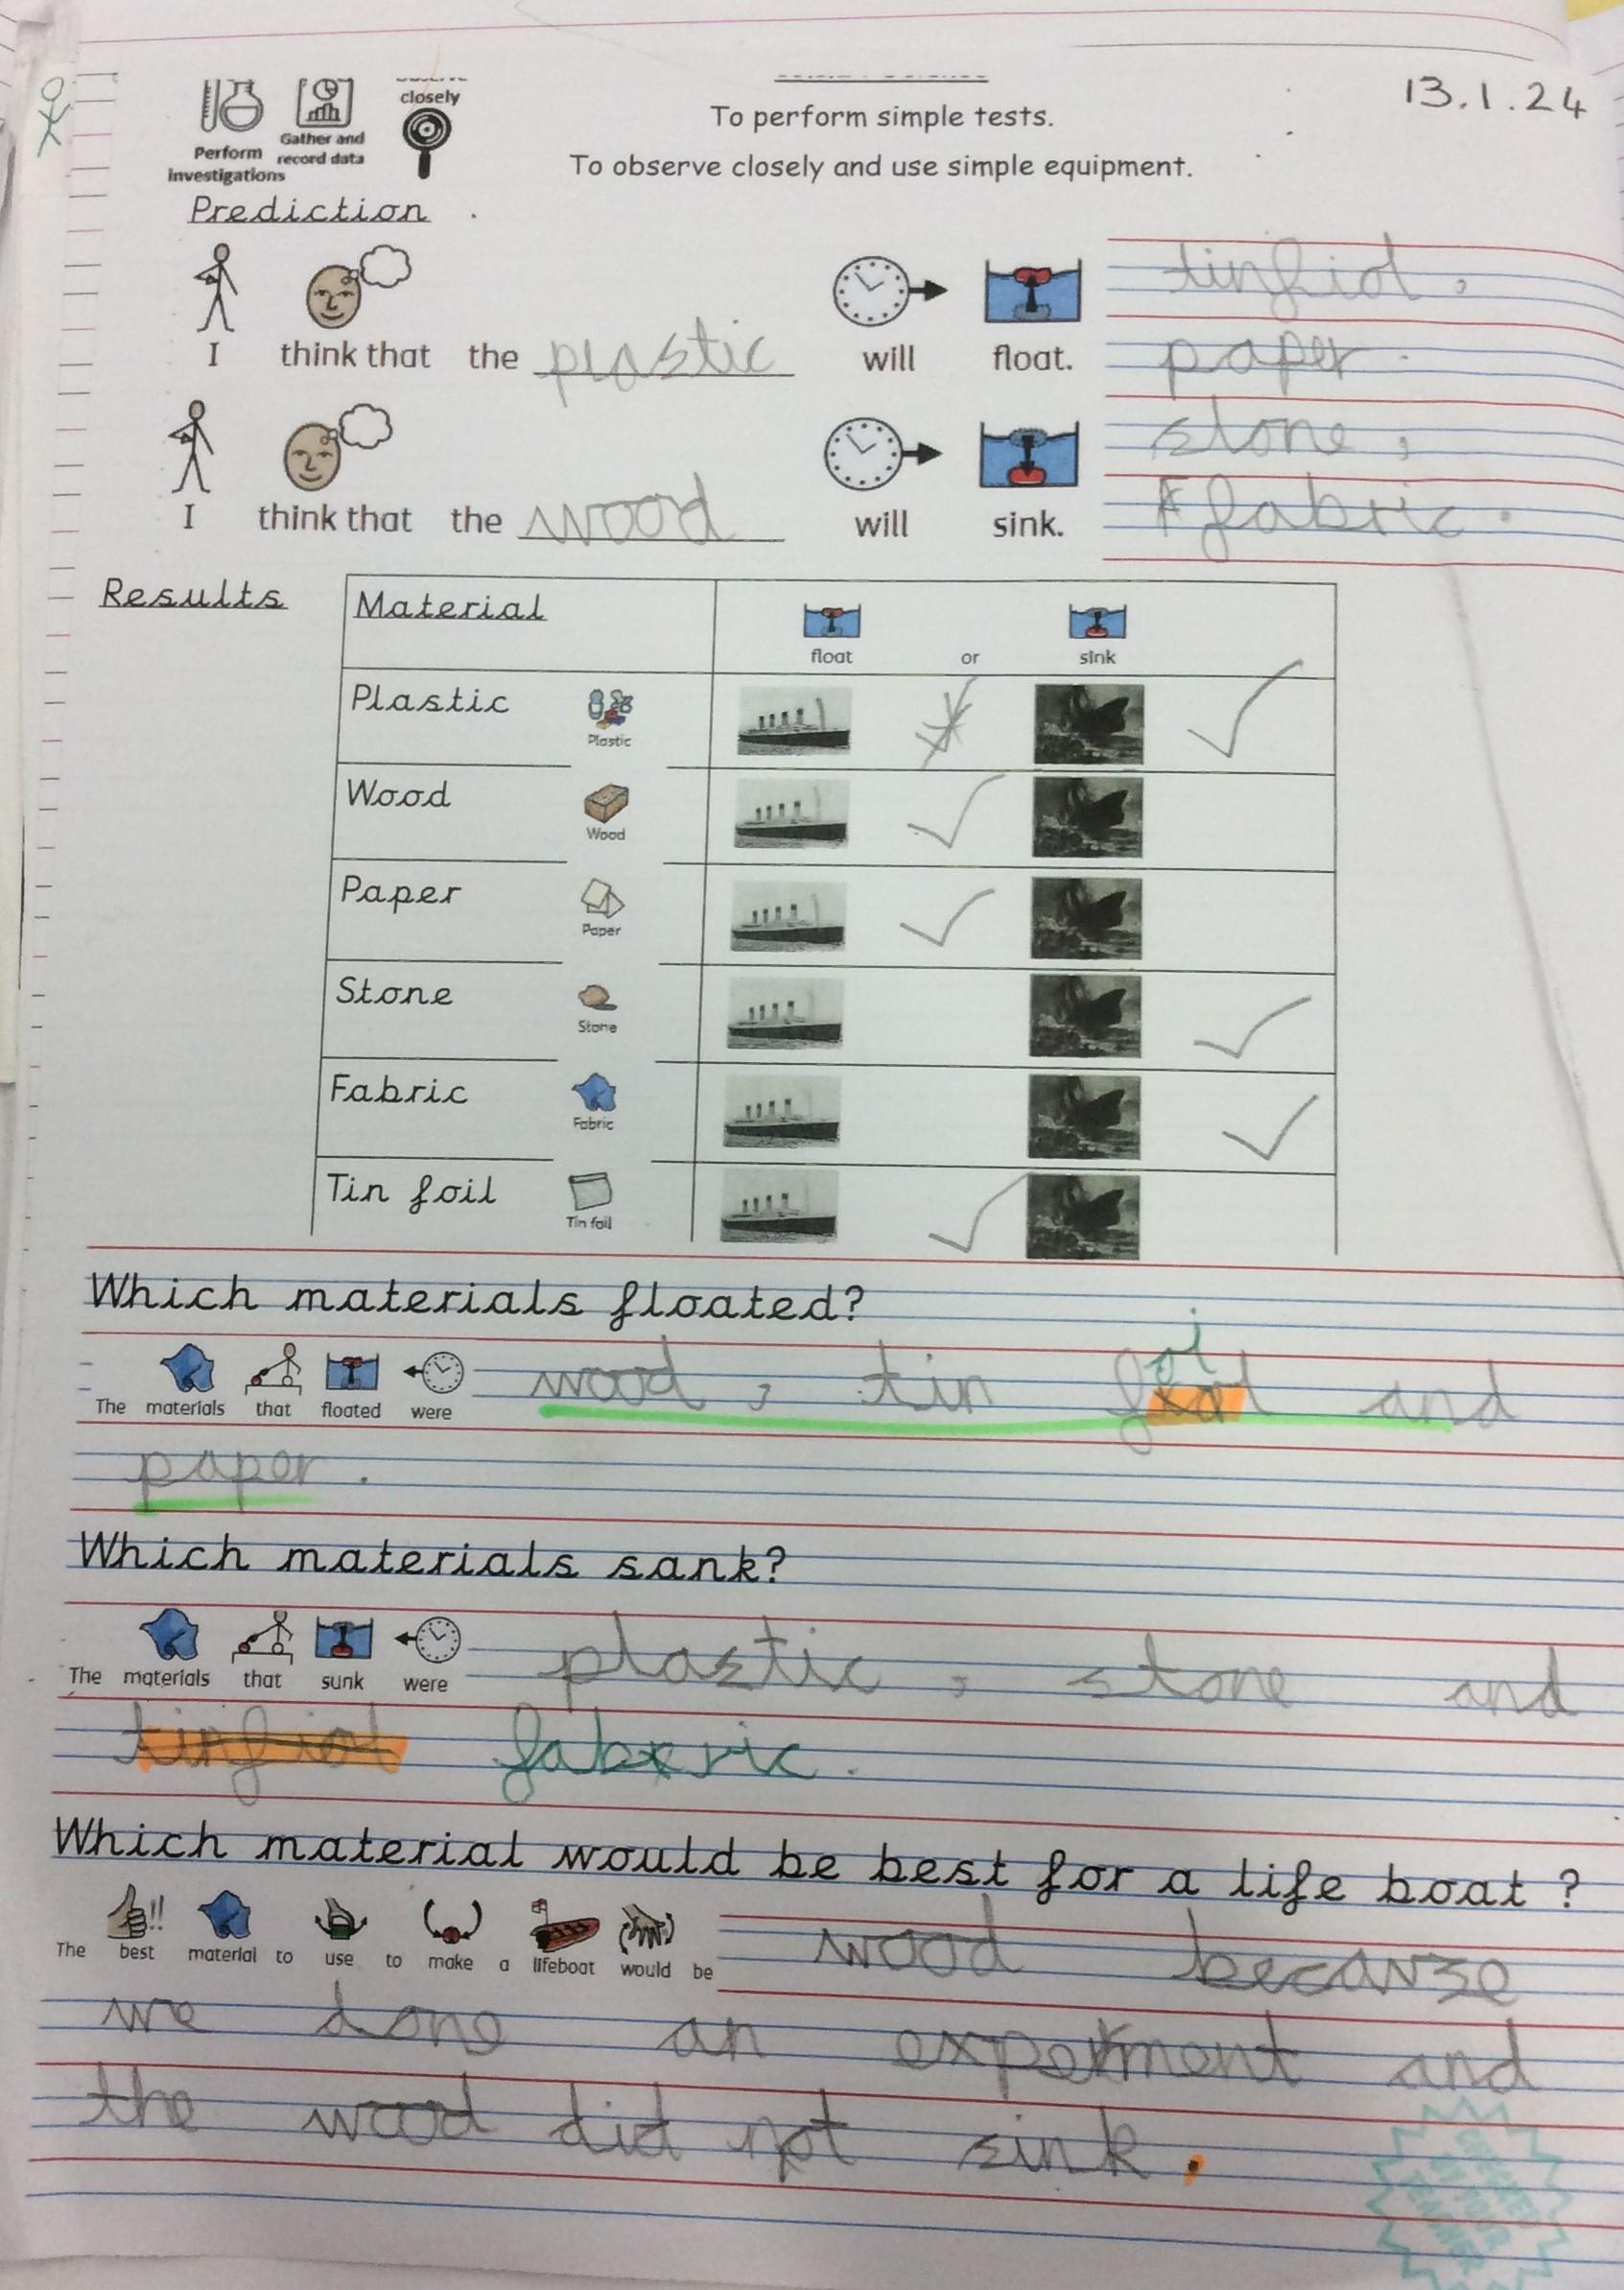 closely
Gather and
record data
Perform
investigations
13.1.24
To perform simple tests.
To observe closely and use simple equipment.
Prediction
I think that the plastic will float.
tinfiol,
paper.
I think that the wood will sink.
stone,
fabric.
Results
Material
float or sink
Plastic
Plastic
Wood
Wood
Paper
Paper
Stone
Stone
Fabric
Fabric
Tin foil
Tin foil
Which materials floated?
oi
The materials that floated were wood, tin fiol and
paper.
Which materials sank?
The materials that sunk were plastic, stone and
tinfiol fabric.
Which material would be best for a life boat?
The best material to use to make a lifeboat would be wood because
we done an experment and
the wood did not sink.
CHECKED
BY YOUR
TEACHER